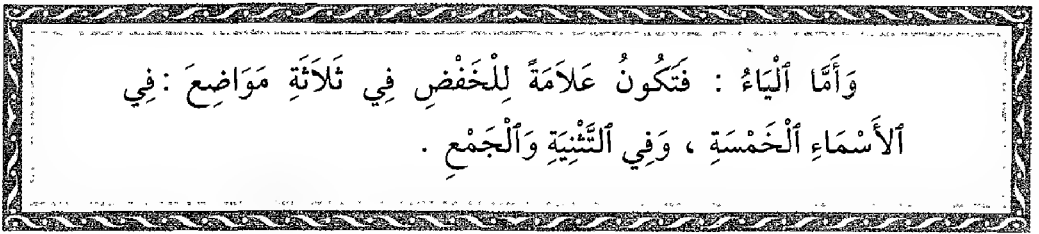 وَأَمَّا ٱلْيَاءُ : فَتَكُونُ عَلاَمَةً لِلْخَفْضِ فِي ثَلاَثَةِ مَوَاضِعَ :فِي
ٱلأَسْمَاءِ ٱلْخَمْسَةِ ، وَفِي ٱلتَّثْنِيَةِ وَٱلْجَمْعِ .